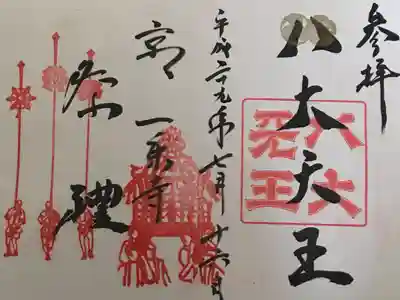 参拝
八大天王
八大天王
平成二十九年七月廿六日
京都一乗寺
祭禮